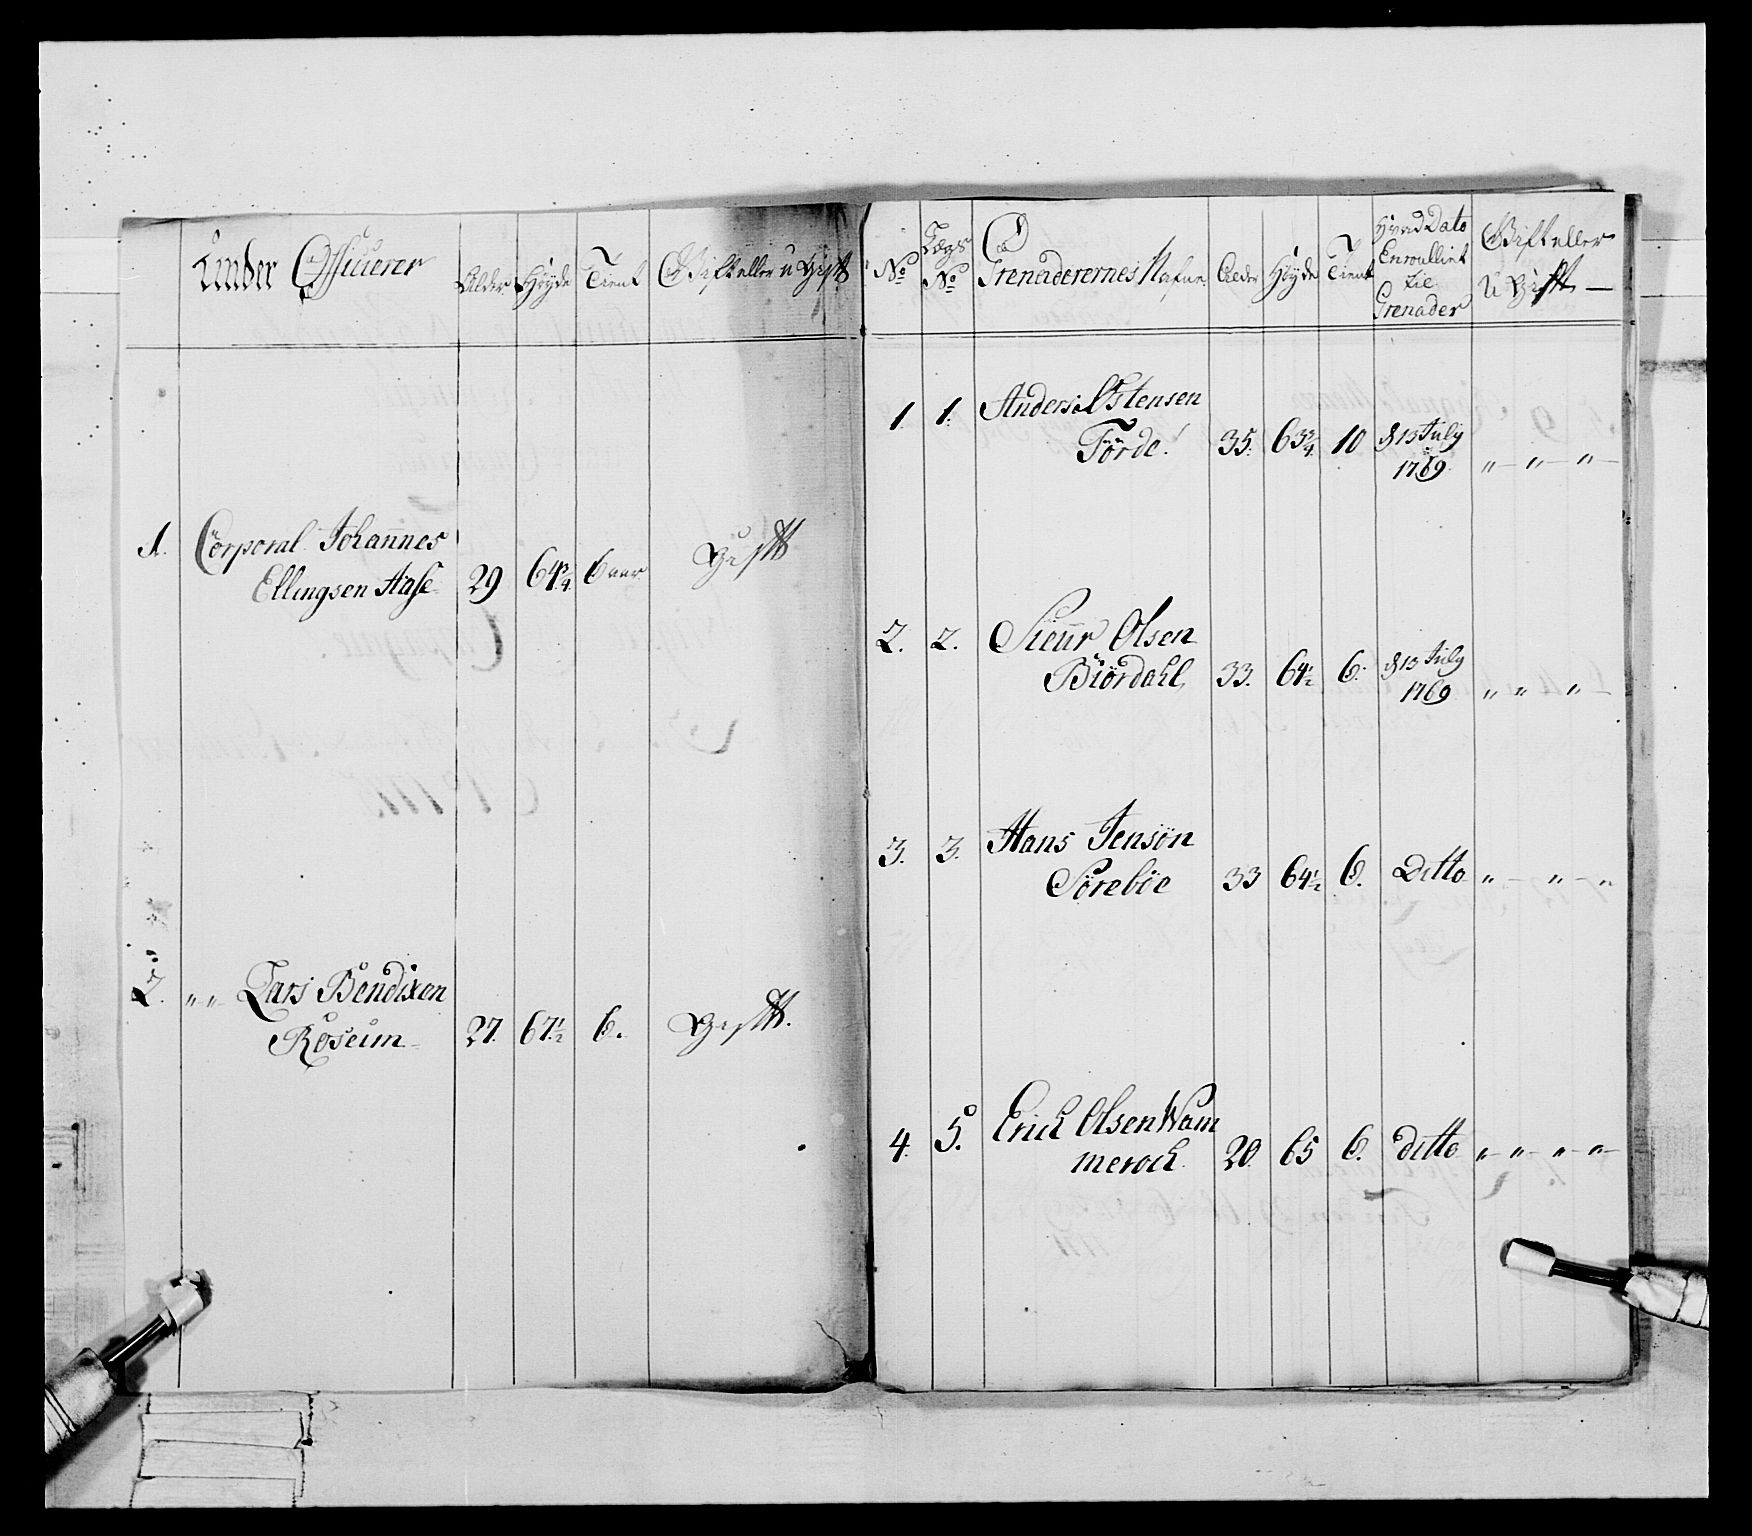 Under Officierer Alder Høyde Tient Gift eller u Gift
1. Corporal Johannes
Ellingsen Aase 29 64¾ 6 aar Gift
2. " " Lars Bendixen
Røseim 27. 67½ 6. Gift.
No Lægs No Grenaderernes Nafne Alder Høyde Tient Hvad Dato Enroullint til Grenader Gift eller U Gift —
1. 1. Anders Ostensen
Förde 35. 63¾ 10 d 13 July
1769. " — " — " —
2. 2. Sieur Olsen
Biördahl 33. 64½ 6. d 13 July
1769 " " " —
3. 3. Hans Jensön
Söreböe 33 64½ 6. Ditto " — " — "
4. 5. Erich Olsen Wam
meroch 20. 65 6. ditto " — " — " — " —